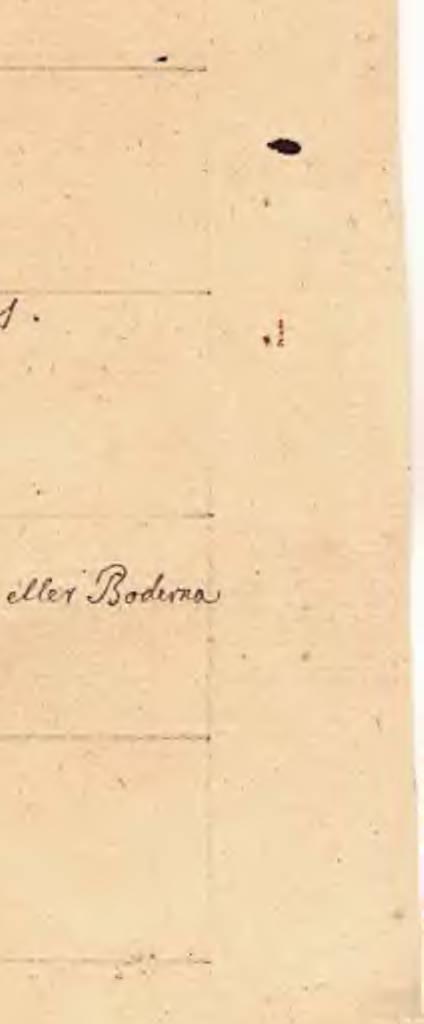 eller Boderna